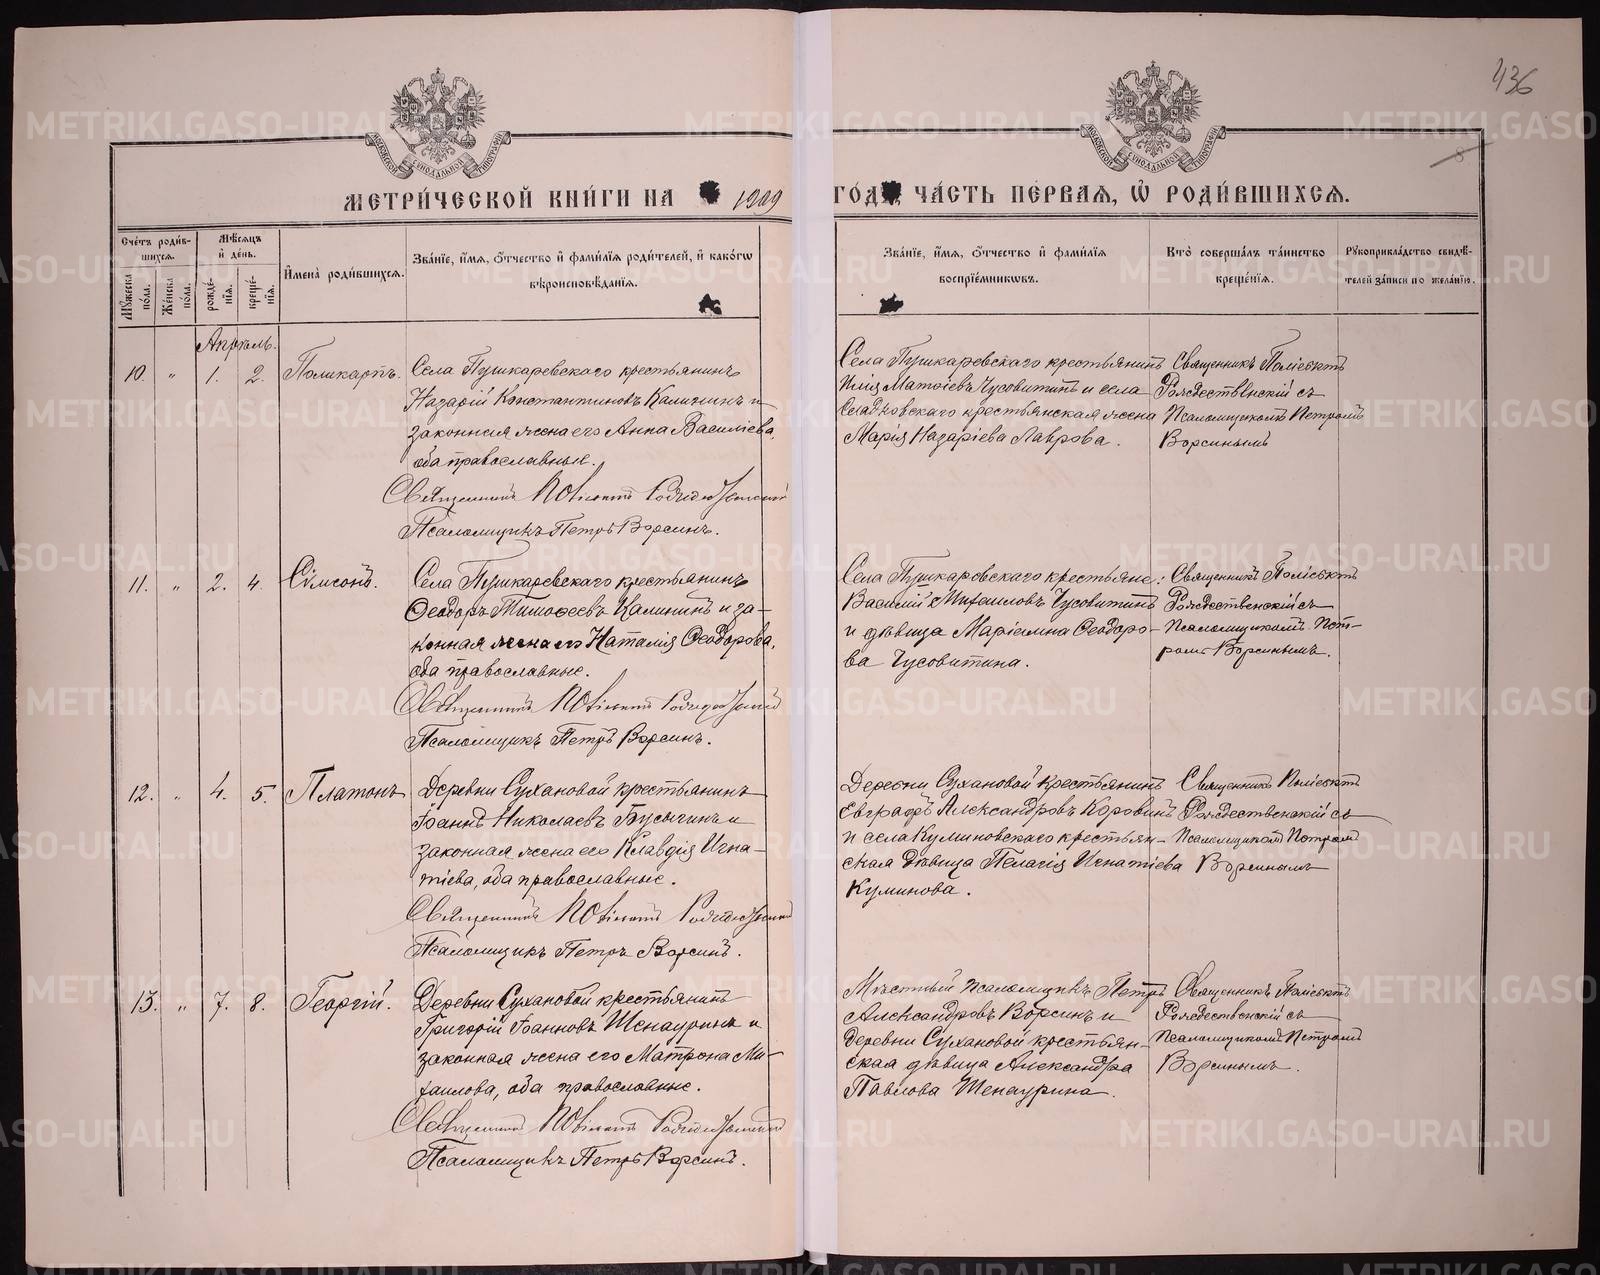 436
8
МОСКОВСКОЙ СѴНОДАЛЬНОЙ ТИПОГРАФІИ
МОСКОВСКОЙ СѴНОДАЛЬНОЙ ТИПОГРАФІИ
МЕТРИ́ЧЕСКОЙ КНИ́ГИ НА 1909 ГО́Д ЧА́СТЬ ПЕ́РВАЯ, Ѽ РОДИ́ВШИХСЯ.
Сче́тъ роди́в-
шихся.
Мѣ́сяцъ
и҆ де́нь.
Му́жеска по́ла.
Же́нска по́ла.
рожде́-
нія.
креще́-
нія.
И҆мена̀ роди́вшихся.
Зва́нїе, и҆́мя, ѻ҆́тчество и҆ фами́лїя роди́телей, и҆ како́гѡ
вѣроисповѣ́данїя.
Зва́нїе, и҆́мя, ѻ҆́тчество и҆ фами́лїя
воспрїе́мникѡвъ.
Кто̀ соверша́лъ та́инство
креще́нїя.
Рꙋкоприкла́дство свидѣ́-
телей за́писи по жела́нїю.
Апрѣль.
10. " 1. 2. Поликарпъ.
Села Пушкаревскаго крестьянинъ
Назарій Константиновъ Калининъ и
законная жена его Анна Василіева,
оба православные.
Священникъ Поліектъ Рождественскій
Псаломщикъ Петръ Ворсинъ.
Села Пушкаревскаго крестьянинъ
Илія Матѳіевъ Чусовитинъ и села
Сладковскаго крестьянская жена
Марія Назаріева Лаврова.
Священникъ Поліектъ
Рождественскій съ
Псаломщикомъ Петромъ
Ворсинымъ
11. " 2. 4. Сѵмеонъ.
Села Пушкаревскаго крестьянинъ
Ѳеодоръ Тимоѳеевъ Калининъ и за-
конная жена его Наталія Ѳеодорова,
оба православные.
Священникъ Поліектъ Рождественскій
Псаломщикъ Петръ Ворсинъ.
Села Пушкаревскаго крестьяне:
Василій Михаиловъ Чусовитинъ
и дѣвица Маріамна Ѳеодоро-
ва Чусовитина.
Священникъ Поліектъ
Рождественскій съ
Псаломщикомъ Пет-
ромъ Ворсинымъ.
12. " 4. 5. Платонъ
Деревни Сухановой крестьянинъ
Іоаннъ Николаевъ Бусыгинъ и
законная жена его Клавдія Игна-
тіева, оба православные.
Священникъ Поліектъ Рождественскій
Псаломщикъ Петръ Ворсинъ.
Деревни Сухановой крестьянинъ
Евграфъ Александровъ Коровинъ
и села Куминовскаго крестьян-
ская дѣвица Пелагія Игнатіева
Куминова.
Священникъ Поліектъ
Рождественскій съ
Псаломщикомъ Петромъ
Ворсинымъ
13. " 7. 8. Георгій.
Деревни Сухановой крестьянинъ
Григорій Іоанновъ Шенауринъ и
законная жена его Матрона Ми-
хаилова, оба православные.
Священникъ Поліектъ Рождественскій
Псаломщикъ Петръ Ворсинъ.
Мѣстный псаломщикъ Петръ
Александровъ Ворсинъ и
деревни Сухановой крестьян-
ская дѣвица Александра
Павлова Шенаурина.
Священникъ Поліектъ
Рождественскій съ
Псаломщикомъ Петромъ
Ворсинымъ.
METRIKI.GASO-URAL.RU